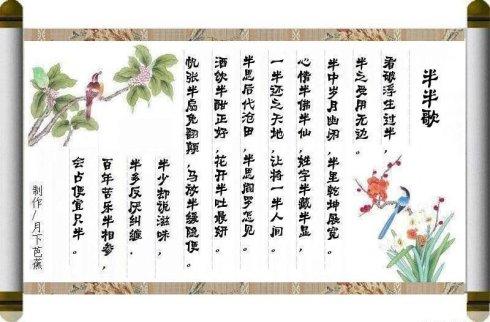 半半歌
看破浮生过半,
半之受用无边。
半中岁月幽闲,半里乾坤展宽。
心情半佛半仙,姓字半藏半显,
一半还之天地,让将一半人间。
半思后代沧田,半思阎罗怎见。
酒饮半酣正好,花开半吐最妍。
帆张半扇免翻颠,马放半缰稳便。
半少却饶滋味,
半多反厌纠缠。
百年苦乐半相参,
会占便宜只半。
制作/月下芭蕉